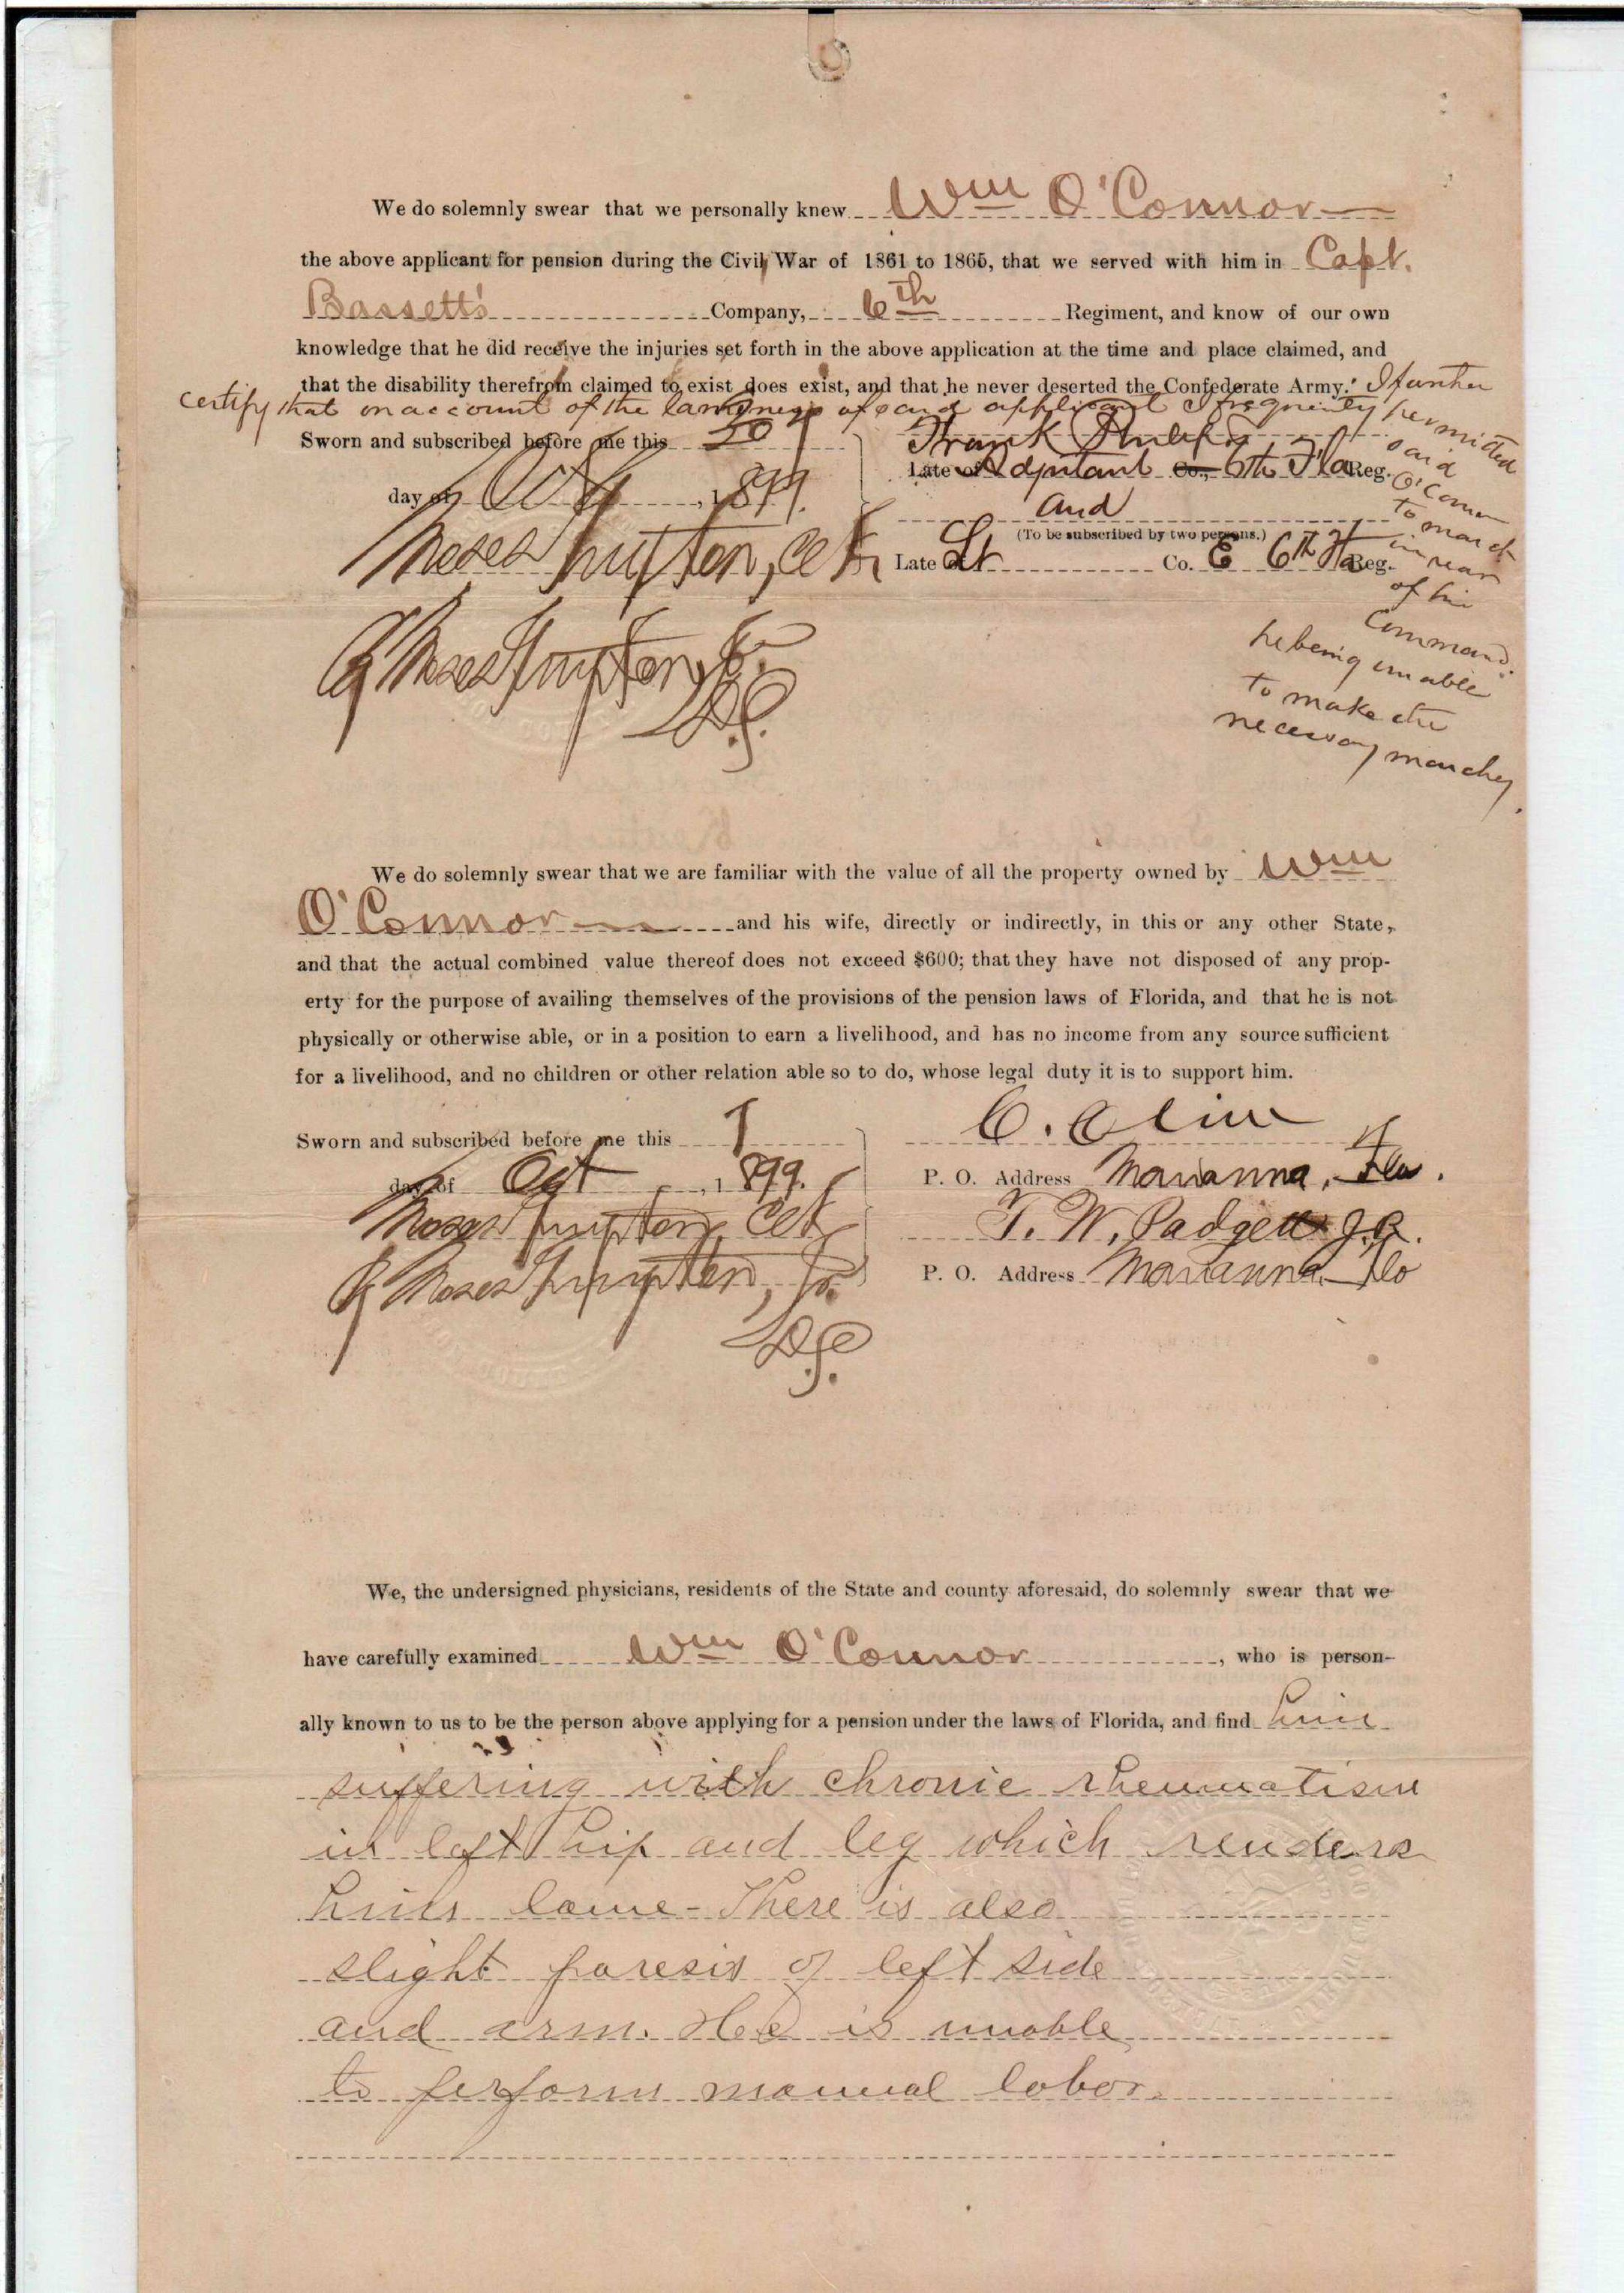 We do solemnly swear that we personally knew Wm O'Connor
the above applicant for pension during the Civil War of 1861 to 1865, that we served with him in Capt.
Bassett's Company, 6th Regiment, and know of our own
knowledge that he did receive the injuries set forth in the above application at the time and place claimed, and
that the disability therefrom claimed to exist does exist, and that he never deserted the Confederate Army. I further
certify that on account of the lameness of said applicant I frequently permitted
said
O'Connor
to march
in rear
of his
Command.
he being unable
to make the
necessary marches.
Sworn and subscribed before me this 30
day of , 1899.
Moses Guyton, Clk
By Moses Guyton, Jr.
D.C.
Frank Philips
Late of Adjutant Co., 6th Fla Reg.
and
(To be subscribed by two persons.)
Late of Lt Co. E 6th Fla Reg.
We do solemnly swear that we are familiar with the value of all the property owned by Wm
O'Connor and his wife, directly or indirectly, in this or any other State,
and that the actual combined value thereof does not exceed $600; that they have not disposed of any prop-
erty for the purpose of availing themselves of the provisions of the pension laws of Florida, and that he is not
physically or otherwise able, or in a position to earn a livelihood, and has no income from any source sufficient
for a livelihood, and no children or other relation able so to do, whose legal duty it is to support him.
Sworn and subscribed before me this 7
day of Oct , 1899.
Moses Guyton, Clk
By Moses Guyton, Jr.
D.C.
C.
P. O. Address Marianna, Fla.
T. W. Padgett
P. O. Address Marianna Fla
We, the undersigned physicians, residents of the State and county aforesaid, do solemnly swear that we
have carefully examined Wm O'Connor , who is person-
ally known to us to be the person above applying for a pension under the laws of Florida, and find him
suffering with chronic rheumatism
in left hip and leg which renders
him lame - There is also
slight paresis of left side
and arm. He is unable
to perform manual labor.